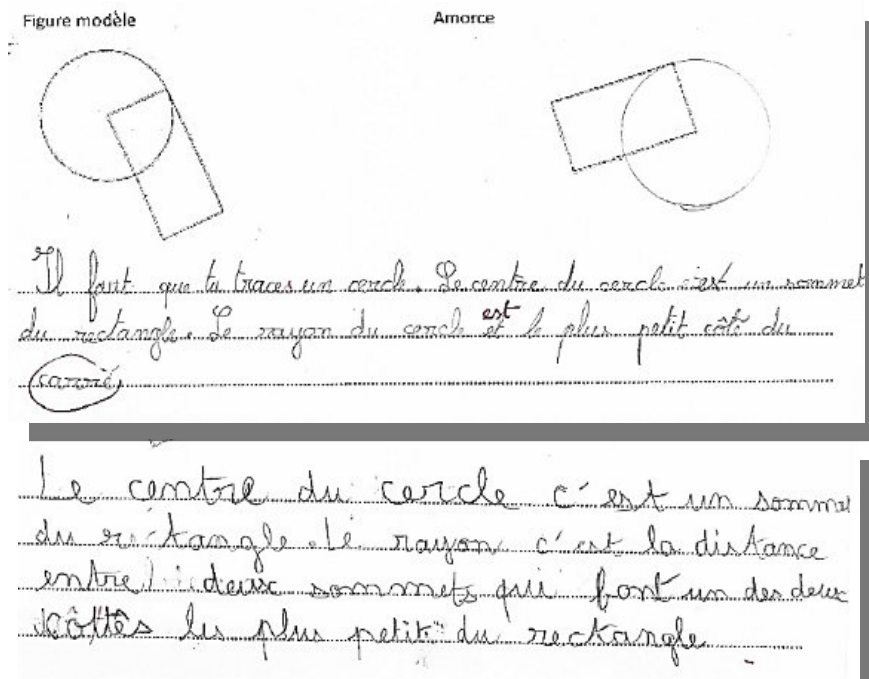 Figure modèle
Amorce
Il faut que tu traces un cercle. Le centre du cercle c'est un sommet
du rectangle. Le rayon du cercle est le plus petit côté du
carré,
Le centre du cercle c'est un somme
du rectangle. Le rayon c'est la distance
entre deux sommets qui font un des deux
côttés les plus petit du rectangle